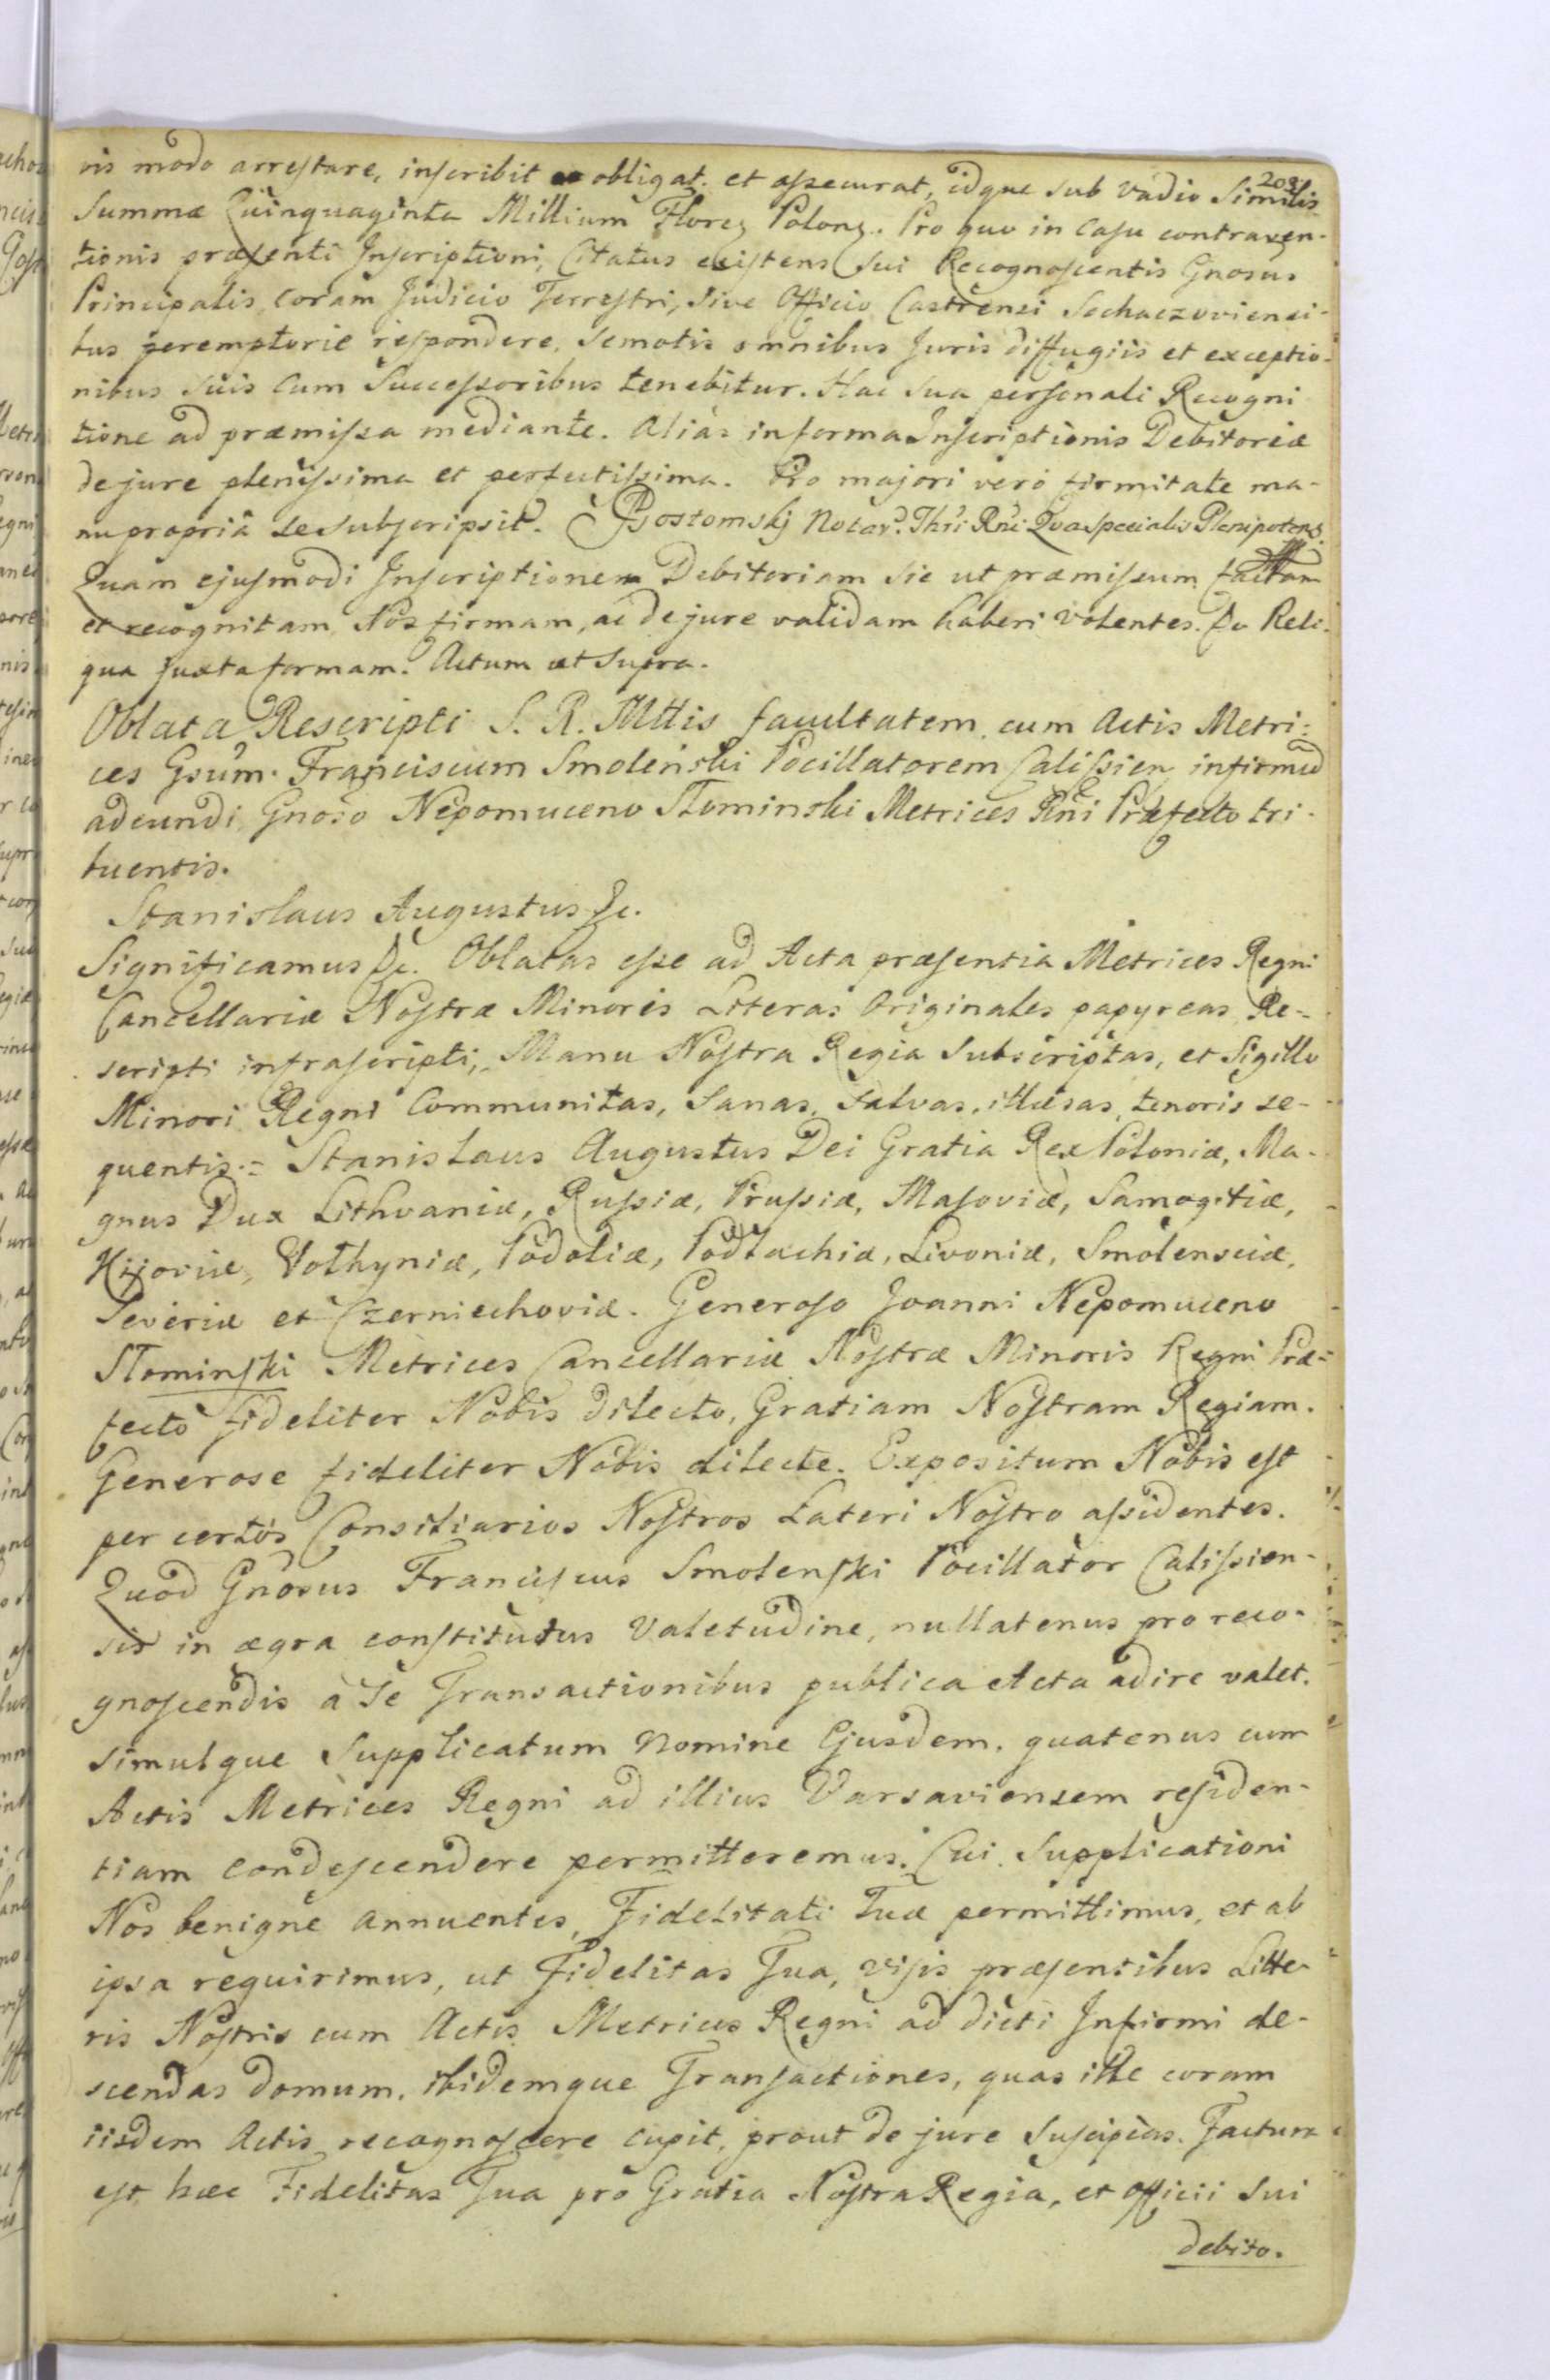 203
vis modo arrestare, inscribit obligat et assecurat, idque sub vadio Similis
Summæ Quinquaginta Millium Floren Polon. Pro quo in Casu contraven-
tionis præsenti Inscriptioni, Citatus existens sui Recognoscentis Gnosus
Principalis, Coram Judicio Terrestri, sive Officio Castrensi Sochaczoviensi-
bus peremptorie respondere, semotis omnibus Juris diffugiis et exceptio-
nibus suis Cum Successoribus tenebitur. Hac sua personali Recogni
tione ad præmissa mediante. Aliàs in forma Inscriptionis Debitoriæ
de jure plenissima et perfectissima. Pro majori verò firmitate ma-
nu propriâ se subscripsit. Rostomskj Notar. Thri Rni Qva specialis Plenipotens.
Quam ejusmodi Inscriptionem Debitoriam sic ut præmissum factam
et recognitam Nos firmam, ac de jure validam haberi volentes. &c Reli-
qua juxta formam. Actum ut Supra.
Oblata Rescripti S. R. Mttis facultatem cum Actis Metri-
ces Gsum Franciscum Smoleński Pocillatorem Calissien infirmũ
adeundi Gnoso Nepomuceno Słominski Metrices Rni Præfecto tri-
buentis.
Stanislaus Augustus &c.
Significamus &c. Oblatas esse ad Acta præsentia Metrices Regni
Cancellariæ Nostræ Minoris Literas Originales papyreas Re-
scripti infrascripti, Manu Nostra Regia Subscriptas, et Sigillo
Minori Regni Communitas, Sanas, Salvas, illæsas, tenoris se-
quentis = Stanislaus Augustus Dei Gratia Rex Poloniæ, Ma-
gnus Dux Lithvaniæ, Russiæ, Prussiæ, Masoviæ, Samogitiæ,
Kijoviæ, Volhyniæ, Podoliæ, Podlachiæ, Livoniæ, Smolensciæ,
Severiæ et Czerniechoviæ. Generoso Joanni Nepomuceno
Słominski Metrices Cancellariæ Nostræ Minoris Regni Præ-
fecto fideliter Nobis dilecto, Gratiam Nostram Regiam.
Generose fideliter Nobis dilecte. Expositum Nobis est
per certos Consiliarios Nostros Lateri Nostro assidentes.
Quod Gnosus Franciscus Smolenski Pocillator Calissien-
sis in ægra constitutus Valetudine, nullatenus pro reco-
gnoscendis à se Transactionibus publica Acta adire valet.
simulque Supplicatum Nomine Ejusdem, quatenus cum
Actis Metrices Regni ad illius Varsaviensem residen-
tiam condescendere permitteremus. Cui Supplicationi
Nos benigne annuentes, Fidelitati Tuæ permittimus, et ab
ipsa requirimus, ut Fidelitas Tua, visis præsentibus Litte-
ris Nostris cum Actis Metrices Regni ad dicti Infirmi de-
scendas domum, ibidemque Transactiones, quas ille coram
iisdem Actis recognoscere cupit, prout de jure Suscipias. Factura
est hæc Fidelitas Tua pro Gratia Nostra Regia, et officii Sui
debito.